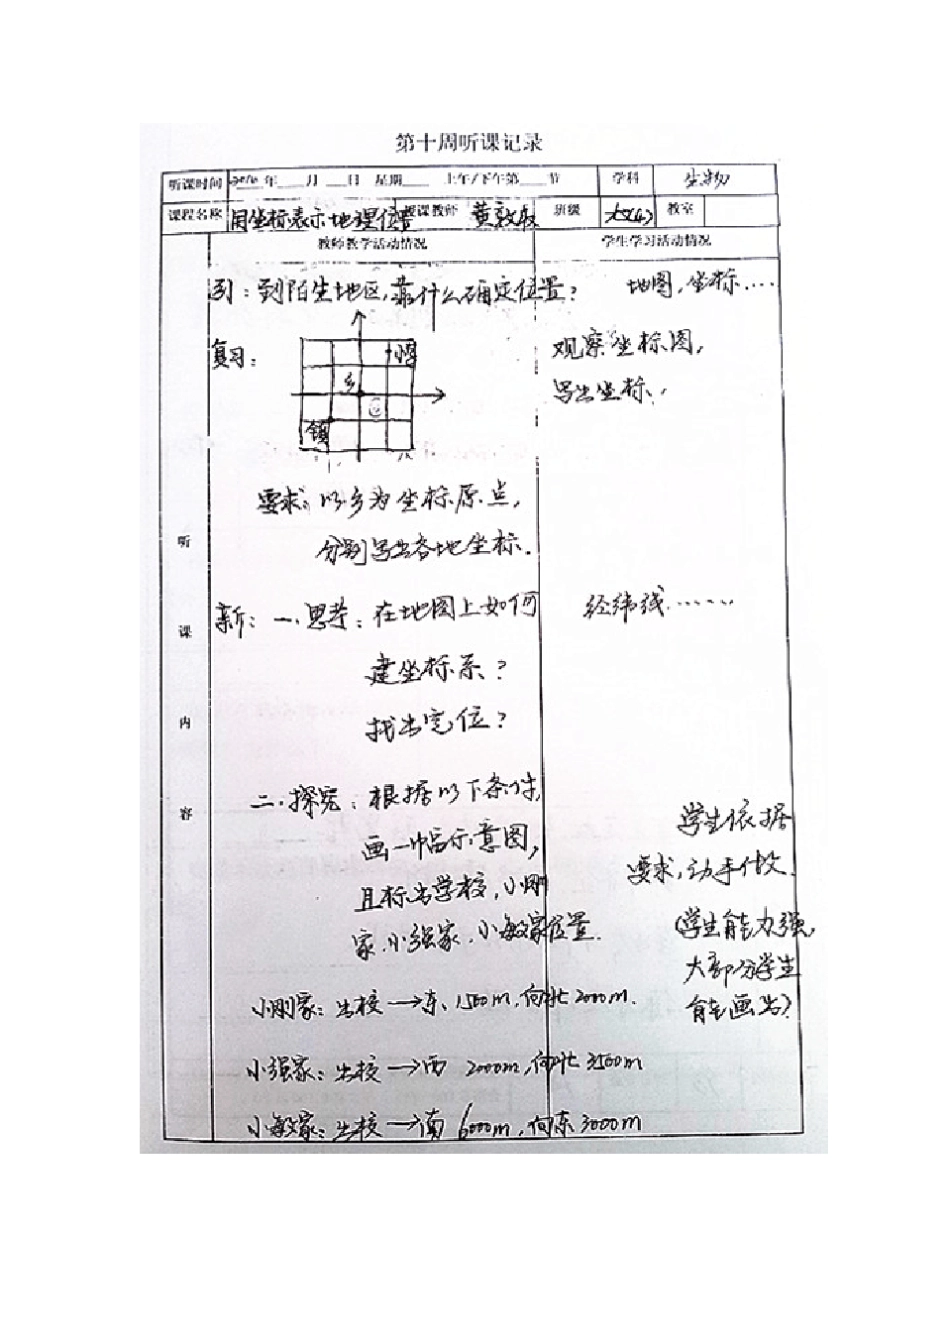 第十周听课记录
听课时间 年 月 日 星期 上午/下午第 节 学科 生物
课程名称 用坐标表示地理位置 授课教师 黄 班级 教室
教师教学活动情况 学生学习活动情况
引：到陌生地区，靠什么确定位置？ 地图，坐标……
复习： 观察坐标图，
写出坐标.
乡
镇
要求：以乡为坐标原点，
分别写出各地坐标.
新：一.思考：在地图上如何 经纬线……
建坐标系？
找出定位？
二.探究：根据以下条件， 学生依据
画一幅示意图， 要求，动手做文.
且标出学校，小刚 (学生能力强，
家.小强家.小敏家位置. 大部分学生
能画出)
小刚家：出校→东、1500m，向北2000m.
小强家：出校→西 2000m，向北3500m
小敏家：出校→南 6000m，向东3000m
听课内容